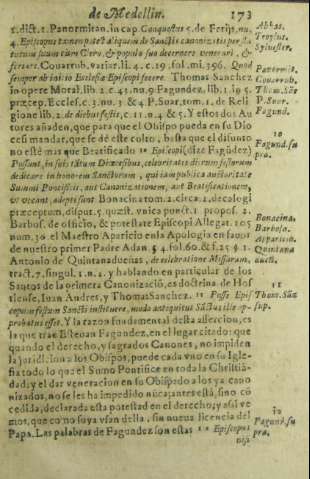 de Medellin. 173
1. dict. 1. Panormitan. in cap. Conquestus 5. de Ferijs, nu.
4. Episcopus tamen potest aliquem de Sanctis canonizatis per
totum suum cum Clero, & populo suo decernere venerari, &
feriare. Couarrub. variar. li. 4. c. 19. fol. mi. 396. Quod
semper ab initio Ecclesiæ Episcopi fecere. Thomas Sanchez
in opere Moral. lib. 2. c. 41. nu. 9. Fagundez, lib. 1. in 1. & 5.
præcep. Eccles. c. 3. nu. 3. & 4. P. Suar. tom. 1. de Reli-
gione lib. 2. de diebus festis, c. 11. n. 4. & 5. Y estos dos Au-
tores añaden, que para que el Obispo pueda en su Dio
cesi mandar, que se dè este culto, basta que el difunto
no estè mas que Beatificado 10 Episcopi (dize Fagũdez)
Possunt, in suis tãtum Diœcesibus, celebritates dierum festorum
dedicare in honorem Sanctorum, qui iam publica auctoritate
Summi Pontificis, aut Canonizationem, aut Beatificationem,
ut vocant, adepti sunt Bonacina tom. 2. circa. 2. decalogi
præceptum, disput. 5. quæst. vnica punct. 1. propos. 2.
Barbos. de officio, & potestate Episcopi Allegat. 105
num. 36. el Maestro Aparicio en la Apologia en fauor
de nuestro primer Padre Adan § 4. fol. 60. & f. 25 § 1.
Antonio de Quintanadueñas, de celebratione Missarum,
tract. 7. singul. 1. n. 1. y hablando en particular de los
Santos de la primera Canonizaciõ, es doctrina de Hos-
tiense, Iuan Andres, y Thomas Sanchez. 11 Posse Epis
copum festum Sancti instituere, modo antequitus Sãctus ille ap-
probatus esset. Y la razon fundamental desta assercion, es
la que trae Esteuan Fagundez, en el lugar citado: que
quando el derecho, y sagrados Canones, no impiden
la juridicion a los Obispos, puede cada vno en su Igle-
sia todo lo que el Sumo Pontifice en toda la Christiã-
dad; y el dar veneracion en su Obispado a los ya cano
nizados, no se les ha impedido nūca; antes està, sino cõ
cedida, declarada esta potestad en el derecho; y assi ve-
mos, que como suya vsan della, sin nueua licencia del
Papa. Las palabras de Fagundez son estas 12 Episcopus
Abbas.
Siluester.
Panormit.
Couarrub.
Thom. Sãc
P. Suar.
Fagund.
10
Fagund. su
pra.
Bonacina.
Barbosa.
Aparicio.
Quintana
dueñ.
11
Thom. Sãc
sup.
12
Fagund. su
pra.